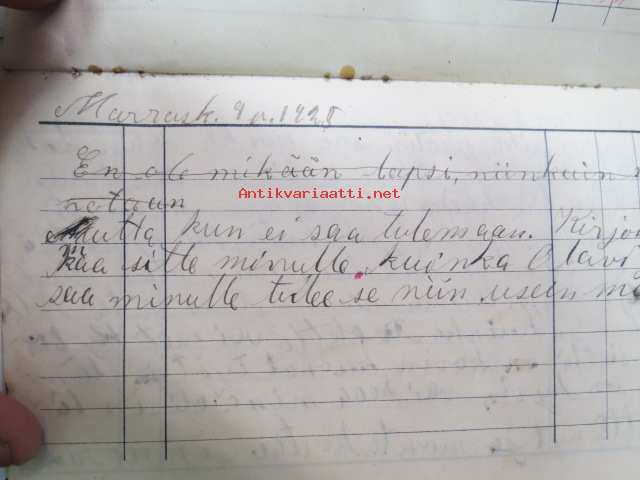 Marrask. 4 p. 1928
En ole mikään lapsi, niinkuin
Antikvariaatti.net
notaan
Mutta kun ei saa tulemaan. Kirjoi
kaa sitte minulle kuinka Olavi
saa minulle tulee se niin usein mi